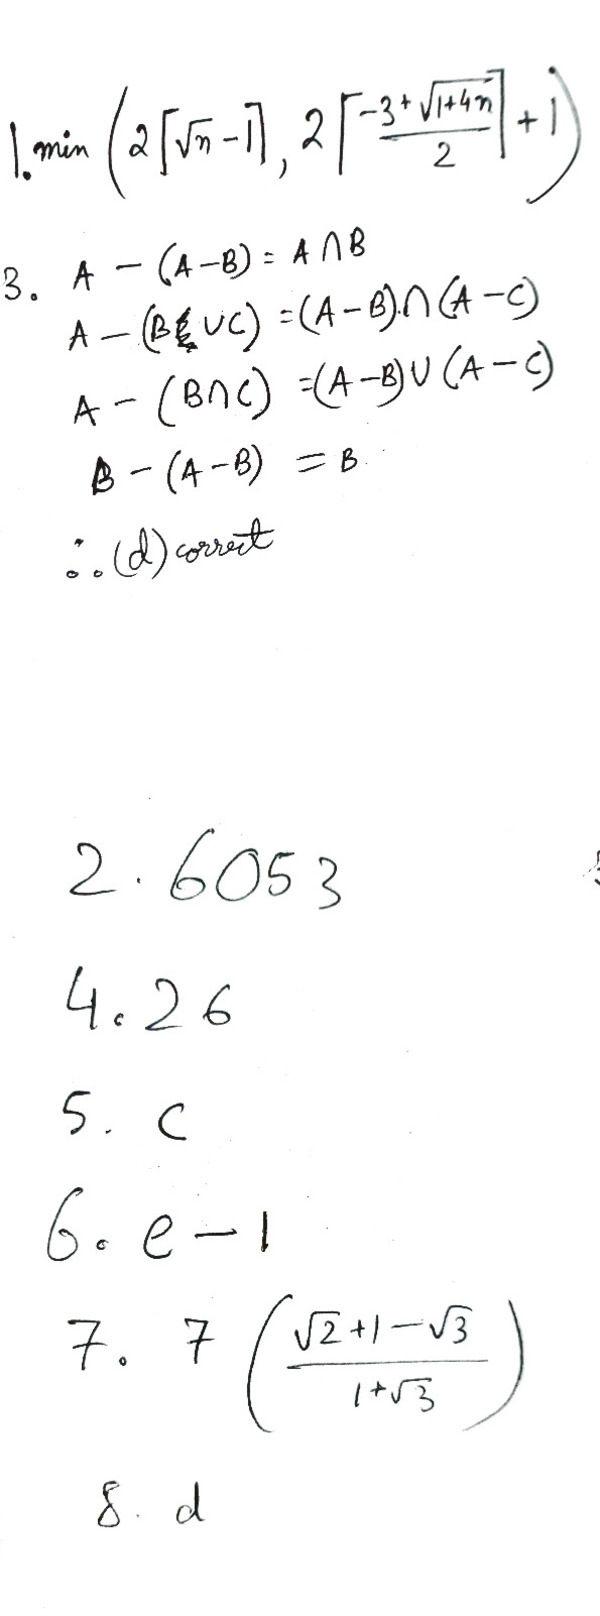 1. min (2⌈√n - 1⌉, 2⌈(-3+√(1+4n))/2⌉ + 1)
3. A - (A-B) = A∩B
A - (B ∪C) = (A-B)∩(A-C)
A - (B∩C) = (A-B)∪(A-C)
B - (A-B) = B
∴ (d) correct
2. 6053
4. 26
5. c
6. e-1
7. 7 ((√2+1-√3)/(1+√3))
8. d